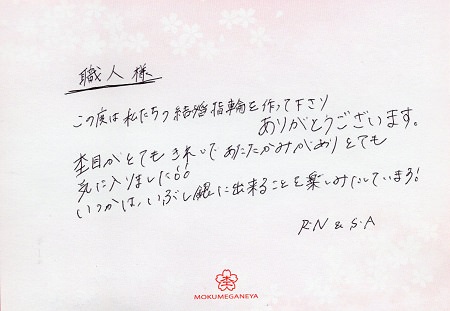 職人様
この度は私たちの結婚指輪を作って下さり
ありがとうございます。
杢目がとてもきれいであたたかみがありとても
気に入りました!!
いつかは、いぶし銀に出来ることを楽しみにしています!
R・N & S・A
杢
MOKUMEGANEYA